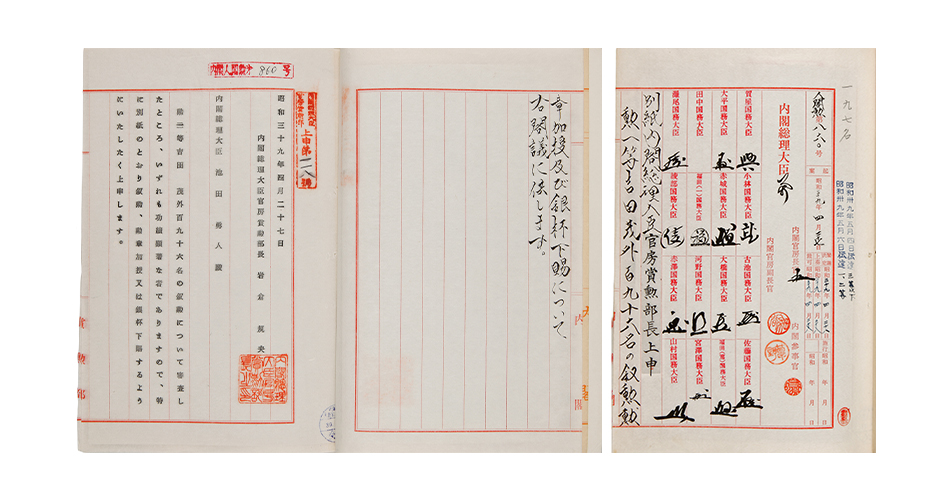 一九七名
昭和卅九年五月四日伝達三等以下
昭和卅九年五月六日伝達一、二等
八六〇号
内閣総理大臣
内閣官房長官
内閣官房副長官
内閣参事官
賀屋国務大臣
小林国務大臣
古池国務大臣
佐藤国務大臣
大平国務大臣
赤城国務大臣
大橋国務大臣
福田(篤)国務大臣
田中国務大臣
福田(一)国務大臣
河野国務大臣
宮澤国務大臣
灘尾国務大臣
綾部国務大臣
赤澤国務大臣
山村国務大臣
別紙内閣総理大臣官房賞勲部長上申
勲一等吉田茂外百九十六名の叙勲勲
章加授及び銀杯下賜について、
右閣議に供します。
860 号
上申第一二八号
昭和三十九年四月二十七日
内閣総理大臣官房賞勲部長 岩倉規夫
内閣総理大臣 池田勇人殿
勲一等吉田 茂外百九十六名の叙勲について審査し
たところ、いずれも功績顕著な者でありますので、特
に別紙のとおり叙勲、勲章加授又は銀杯下賜するよう
にいたしたく上申します。
賞勲部